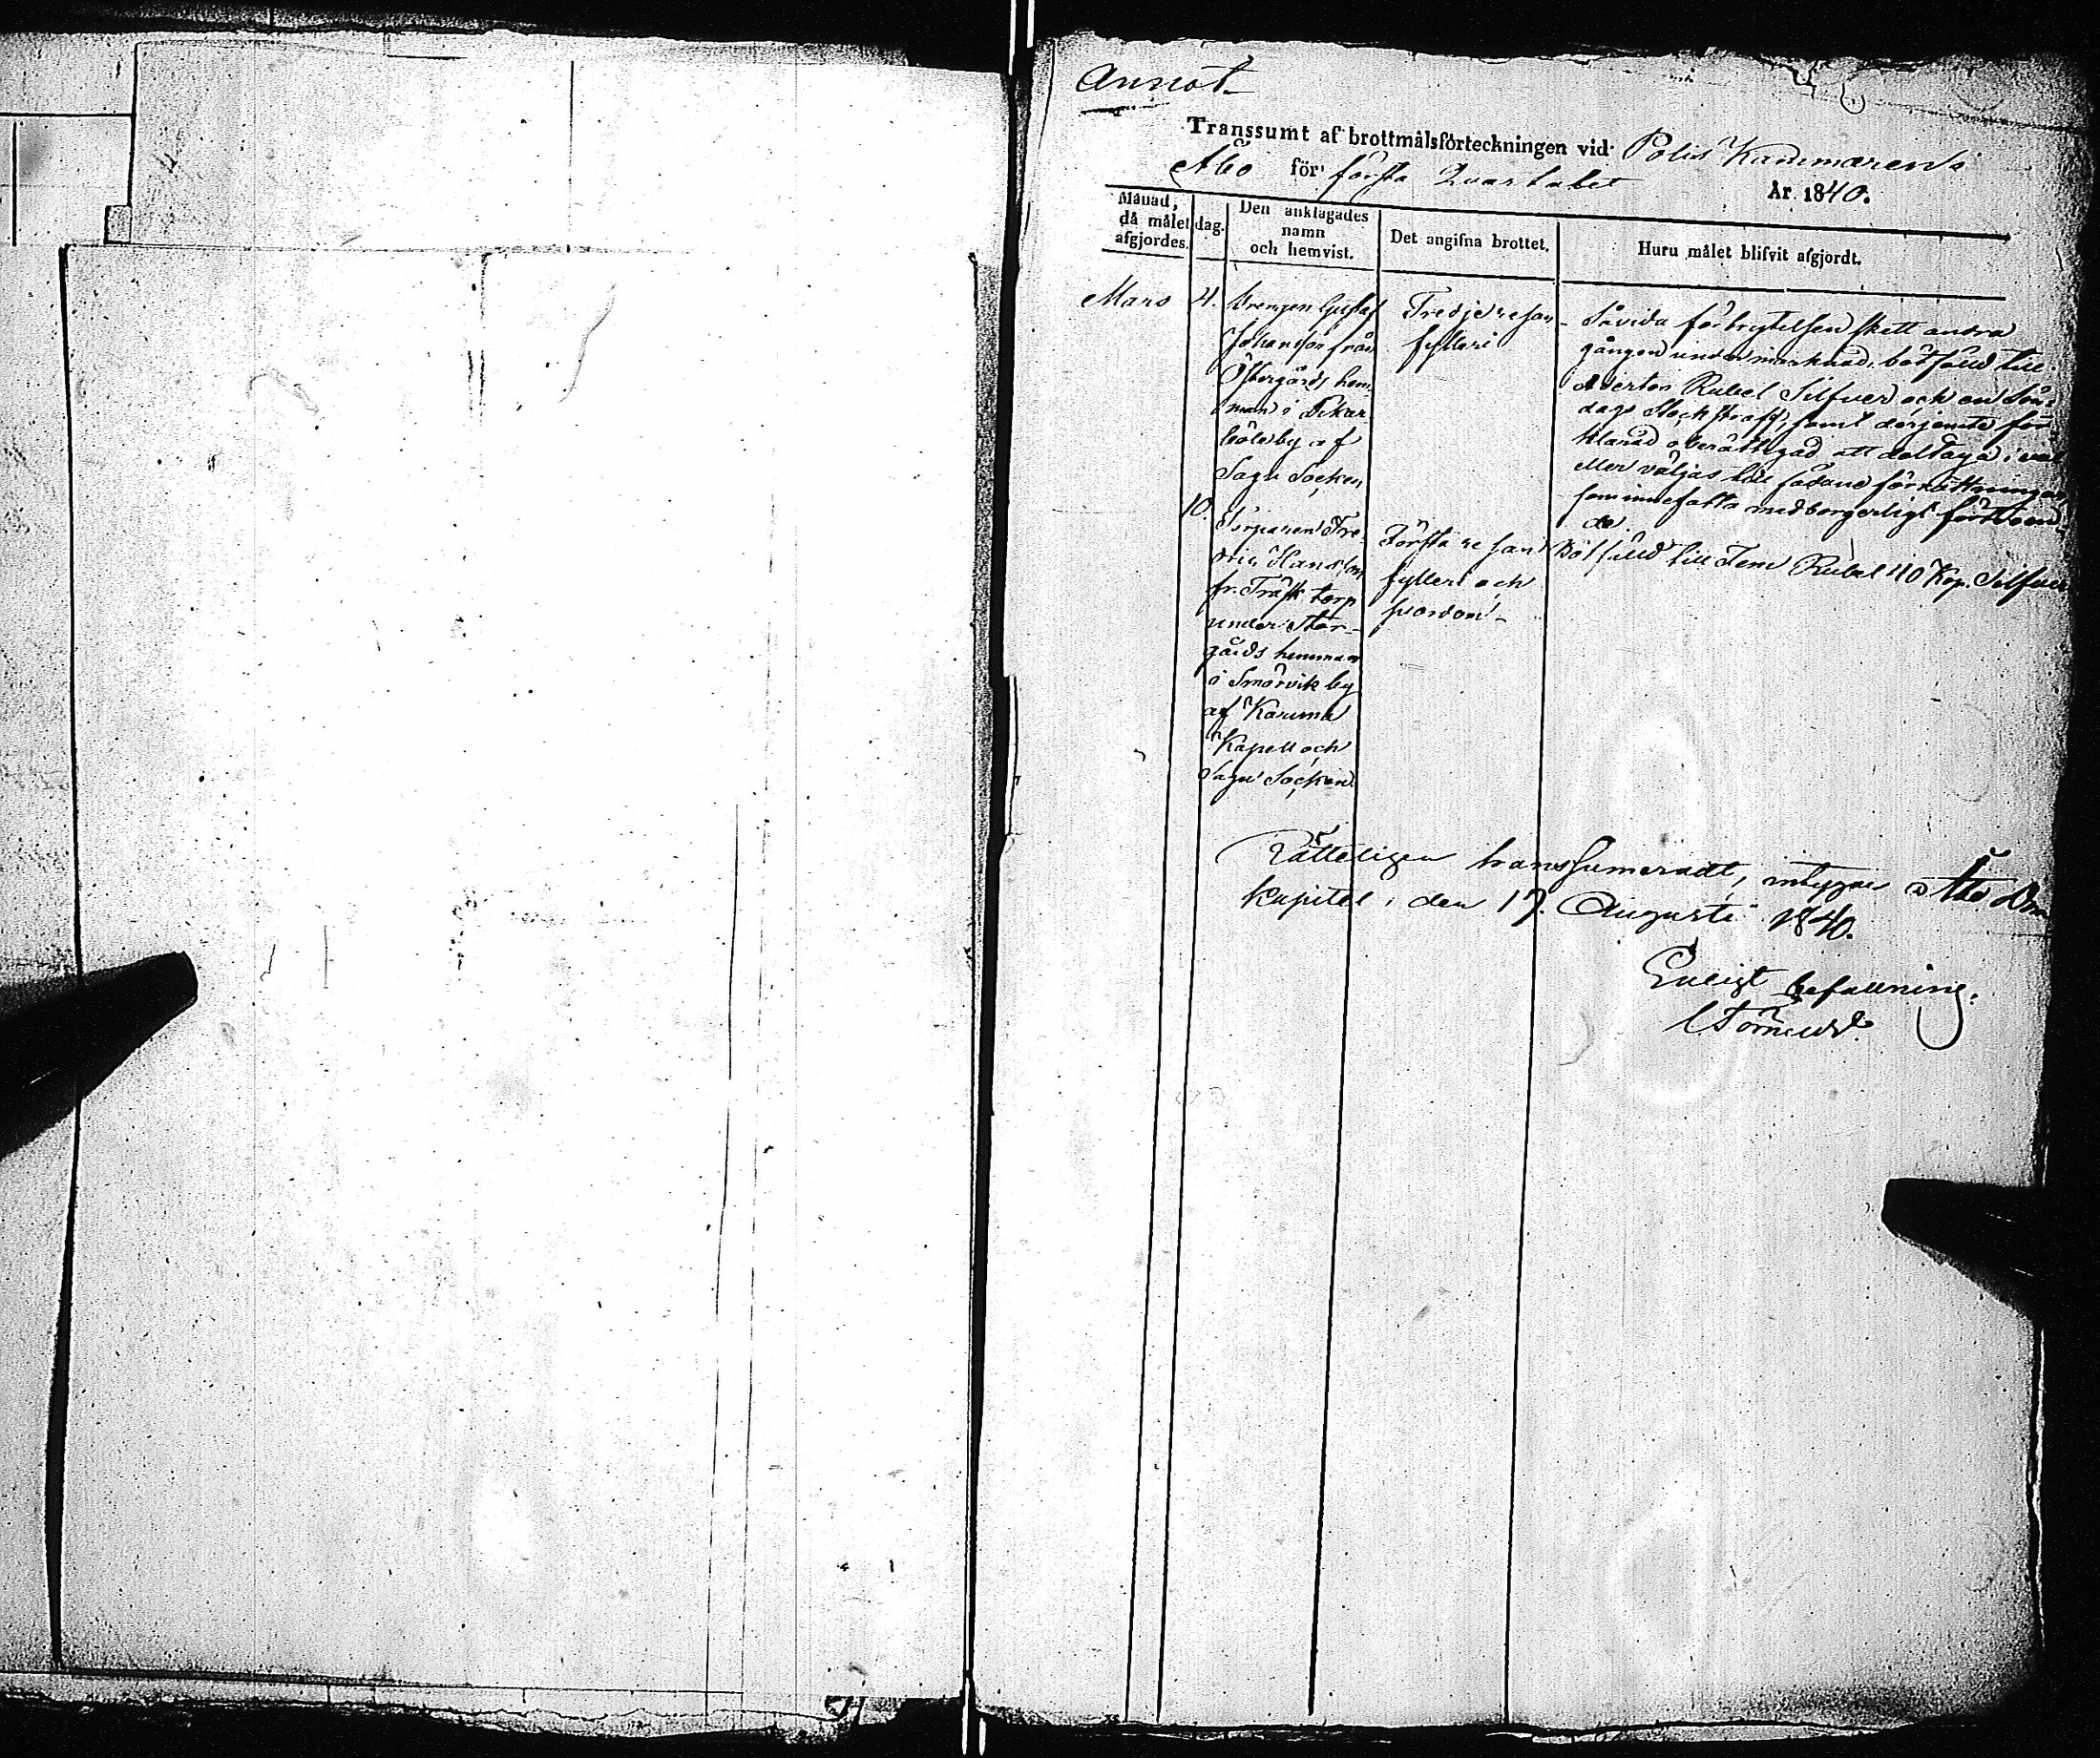 Annot.
Transsumt af brottmålsförteckningen vid Polis Kammaren i
Åbo för första Quartalet År 1840.
Månad, då målet afgjordes.
dag.
Den anklagades namn och hemvist.
Det angifna brottet.
Huru målet blifvit afgjordt.
Mars
4.
Drengen Gustaf
Johansson från
Östergårds hem-
man i
böle by af
Sagu Socken
Tredje resan
fylleri
Såvida förbrytelsen skett andra
gången under marknad, bötfälld till
Aderton Rubel Silfver och en Sön-
dags Stockstraff, samt derjemte för
klarad oberättigad att deltaga i val
eller väljas till sådane förrättningar
som innefatta medborgerligt förtroen-
de.
10.
Torparen Fre-
dric Hansson
fr. Träsk torp
under Stor-
gårds hemman
i Smörvik by
af Karuna
Kapell och
Sagu Socken.
Första resan
fylleri och
svordom
Bötfälld till Fem Rubel 110 Kop. Silfver
Rätteligen transsumeradt, intygar Åbo Dom
kapitel, den 17. Augusti 1840.
Enligt befallning.